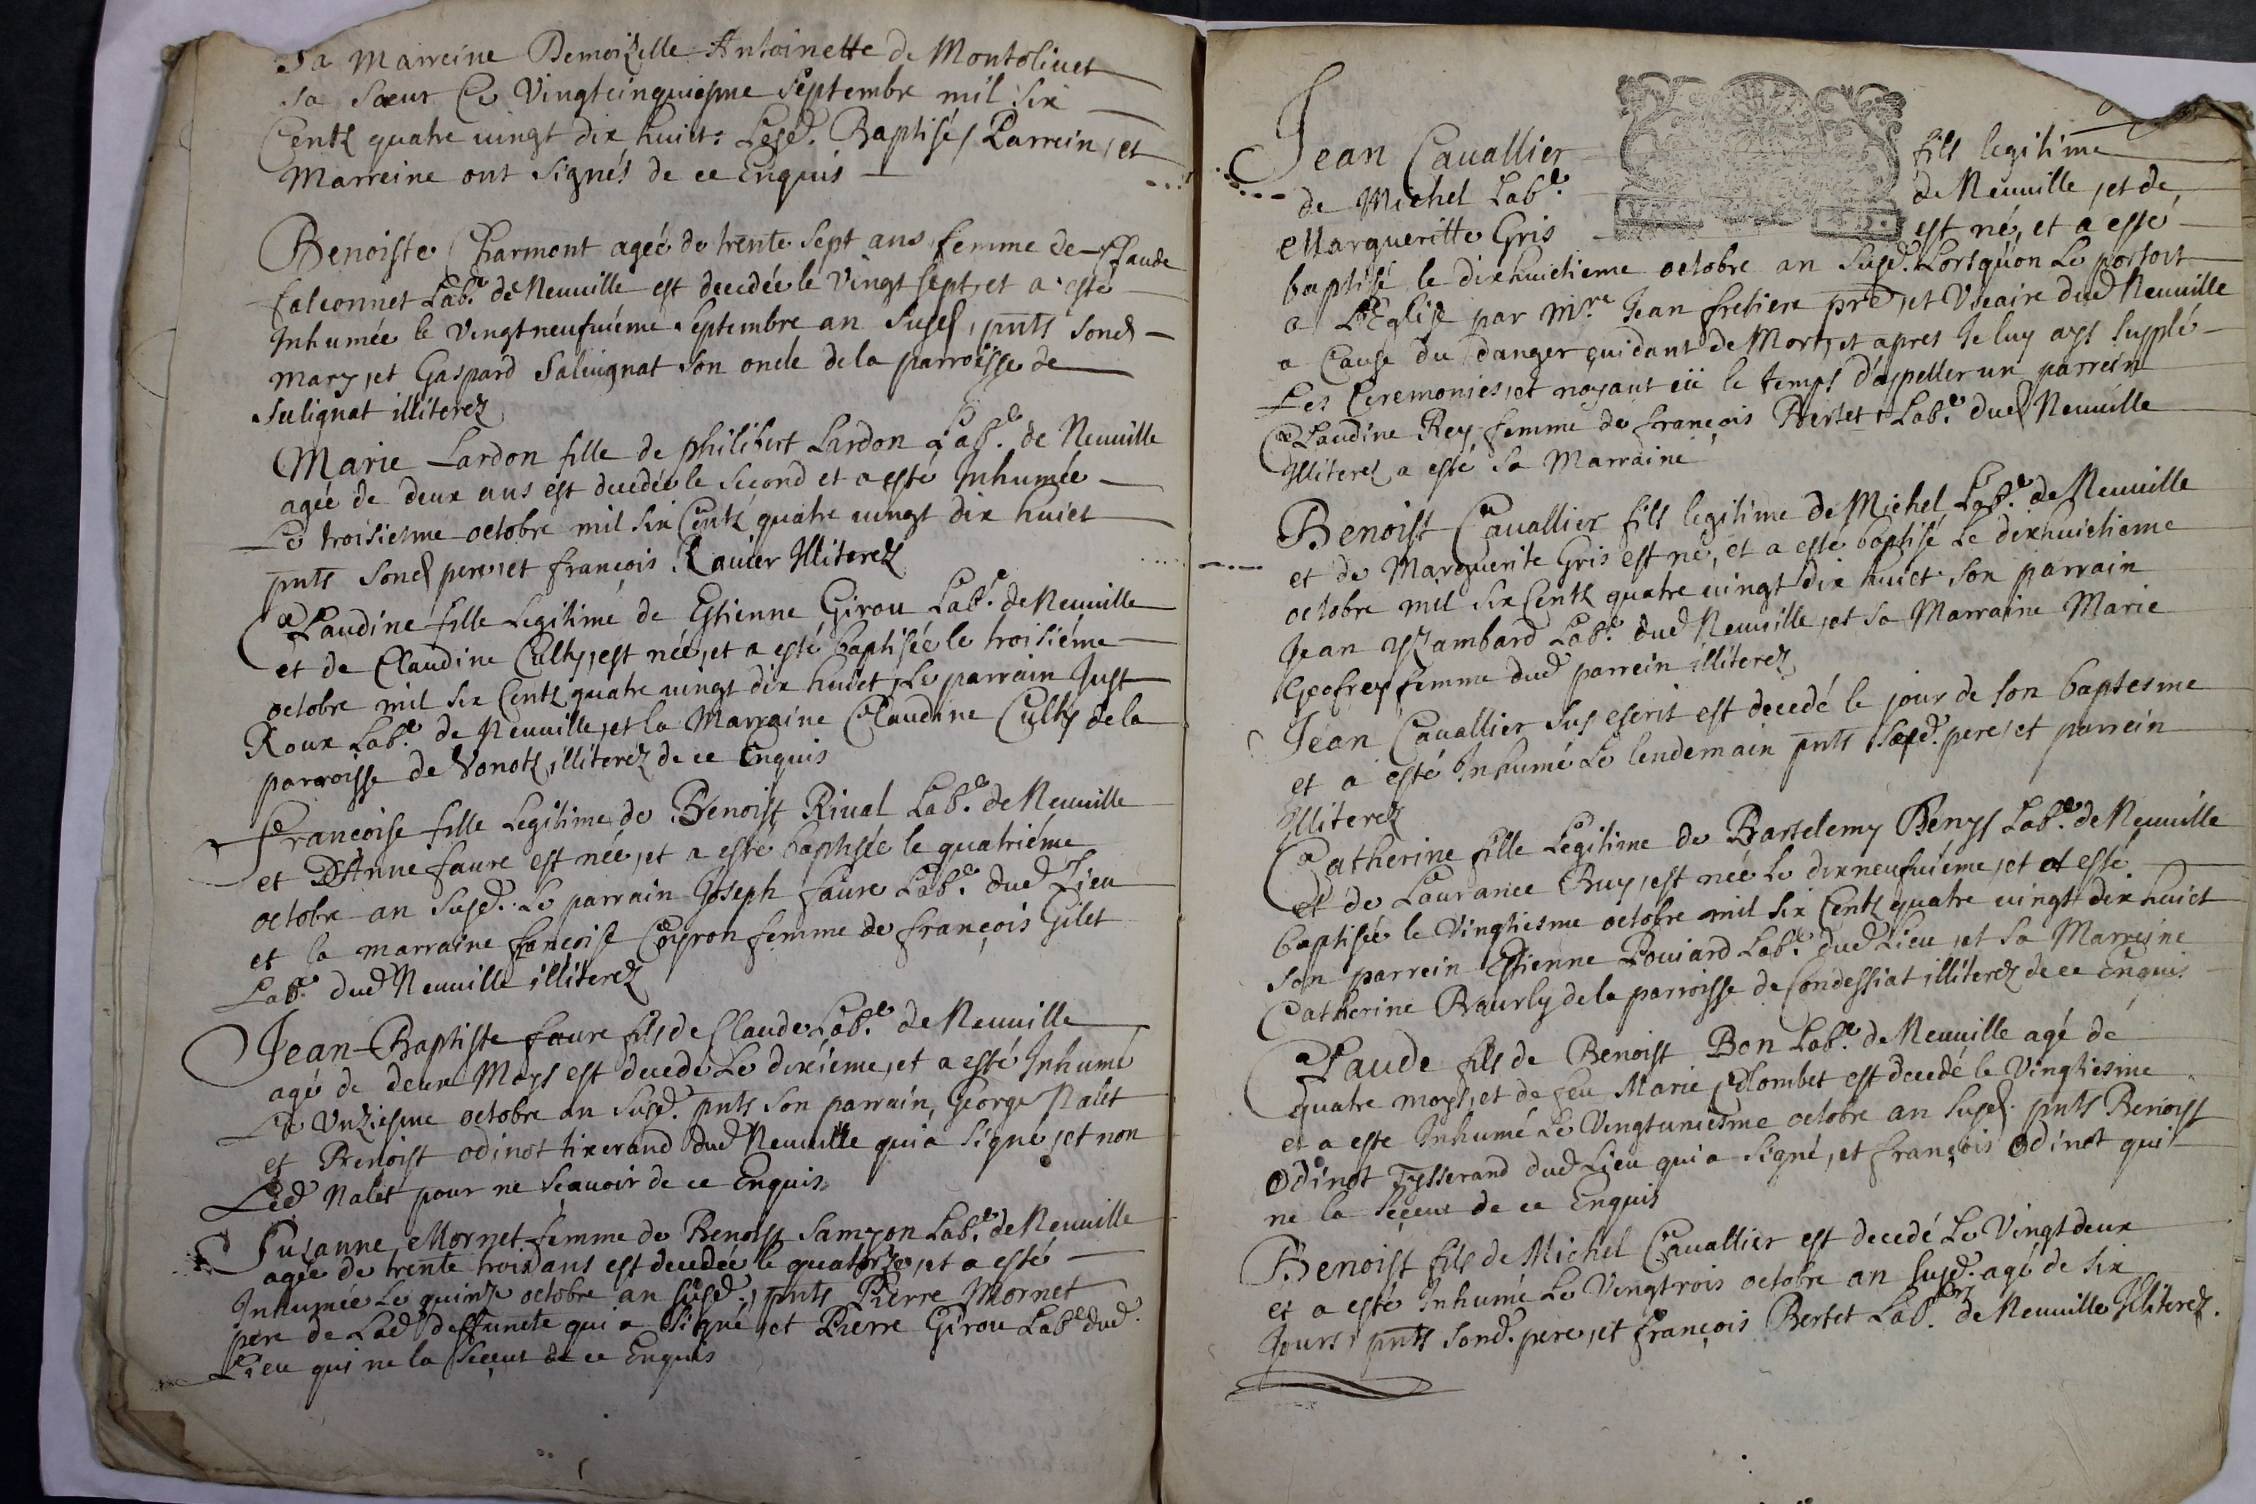 Sa Marreine Demoizelle Antoinette de Montoliuet
sa sœur Ce Vingtcinquiesme Septembre mil six
Centz quatre uingt dix huict. Lesd. Baptisé, Parrein, et
Marreine ont signés de ce Enquis
Benoiste Charmont agée de trente sept ans femme de Claude
falconnet Labr. de Neuuille est decedée le Vingt sept, et a esté
Inhumée le Vingtneufuiéme Septembre an susd, pnts sond
mary, et Gaspard Saluignat son oncle de la parroisse de
Sulignat illiterez
Marie Lardon fille de philibert Lardon Labr. de Neuuille
agée de deux ans est decedée le second et a esté Inhumée
Le troisiesme octobre mil six Centz quatre uingt dix huict
pnts sond pere, et françois Rauier Illiterez
Claudine fille Legitime de Estienne Girou Labr. de Neuuille
et de Claudine Culty, est née, et a esté baptisée le troisiéme
octobre mil six Centz quatre uingt dix huict, Le parrain Just
Roux Labr. de Neuuille, et la Marraine Claudine Culty de la
parroisse de Vonotz, illiterez de ce Enquis
Francoise fille Legitime de Benoist Riual Labr. de Neuuille
et D'Anne faure est née, et a esté baptisée le quatriéme
octobre an susd. Le parrain Joseph faure Labr. dud Lieu
et la marraine françoise Coyron femme de françois Gilet
Labr. dud Neuuille illiterez
Jean-Baptiste faure fils de Claude Labr. de Neuuille
agé de deux Moys est decedé Le dixiéme, et a esté Inhumé
Le Vnziesme octobre an susd. pnts son parrain, George Nalet
et Benoist odinot tixerand dud Neuuille qui a signé, et non
Led Nalet pour ne sçauoir de ce Enquis
Suzanne Mornet femme de Benoist Samyon Labr. de Neuuille
agée de trente trois ans est decedée le quatorze, et a esté
Inhumée Le quinze octobre an susd., pnts Pierre Mornet
pere de Lad deffuncte qui a signé, et Pierre Girou Labr dud.
Lieu qui ne la sçeut de ce Enquis
Jean Cauallier fils legitime
de Michel Labr. de Neuuille, et de
Margueritte Gris est né, et a esté
baptisé le dixhuictieme octobre an susd. Lorsqu'on Le portoit
a L'Eglise par Mre Jean fretiere pre, et Vicaire dud Neuuille
a Cause du danger euidant de Mort, et apres Je luy ays supplé
Les Ceremonies, et nayant eü le temps d'appeller un parrein
Claudine Rey femme de françois Bertet Labr. dud Neuuille
Illiterez a esté sa Marraine
Benoist Cauallier fils legitime de Michel Labr. de Neuuille
et de Marguerite Gris est né, et a esté baptisé Le dixhuictieme
octobre mil six Centz quatre uingt dix huict son parrain
Jean Yzambard Labr. dud Neuuille, et sa Marraine Marie
Geofrey femme dud parrein illiterez
Jean Cauallier sus escrit est decedé le jour de son baptesme
et a esté Inhumé Le lendemain pnts sesd. pere, et parrein
Illiterez
Catherine fille Legitime de Bartelemy Benys Labr. de Neuuille
et de Laurance Buy, est née Le dixneufuiéme, et a esté
baptisée le Vingtiesme octobre mil six Centz quatre uingt dix huict
son parrein Estienne Pouiard Labr. dud Lieu, et sa Marreine
Catherine Bourly de la parroisse de Condessiat illiterez de ce Enquis
Claude fils de Benoist Bon Labr. de Neuuille agé de
quatre moys, et de feu Marie Colombet est decedé le Vingtiesme
et a esté Inhumé Le Vingtuniesme octobre an susd. pnts Benoist
Odinot Tysserand dud Lieu qui a signé, et françois Odinot qui
ne la sçeut de ce Enquis
Benoist fils de Michel Cauallier est decedé Le Vingtdeux
et a esté Inhumé Le Vingtrois octobre an susd. agé de six
Jours, pnts sond. pere, et françois Bertet Labr. de Neuuille Illiterez.